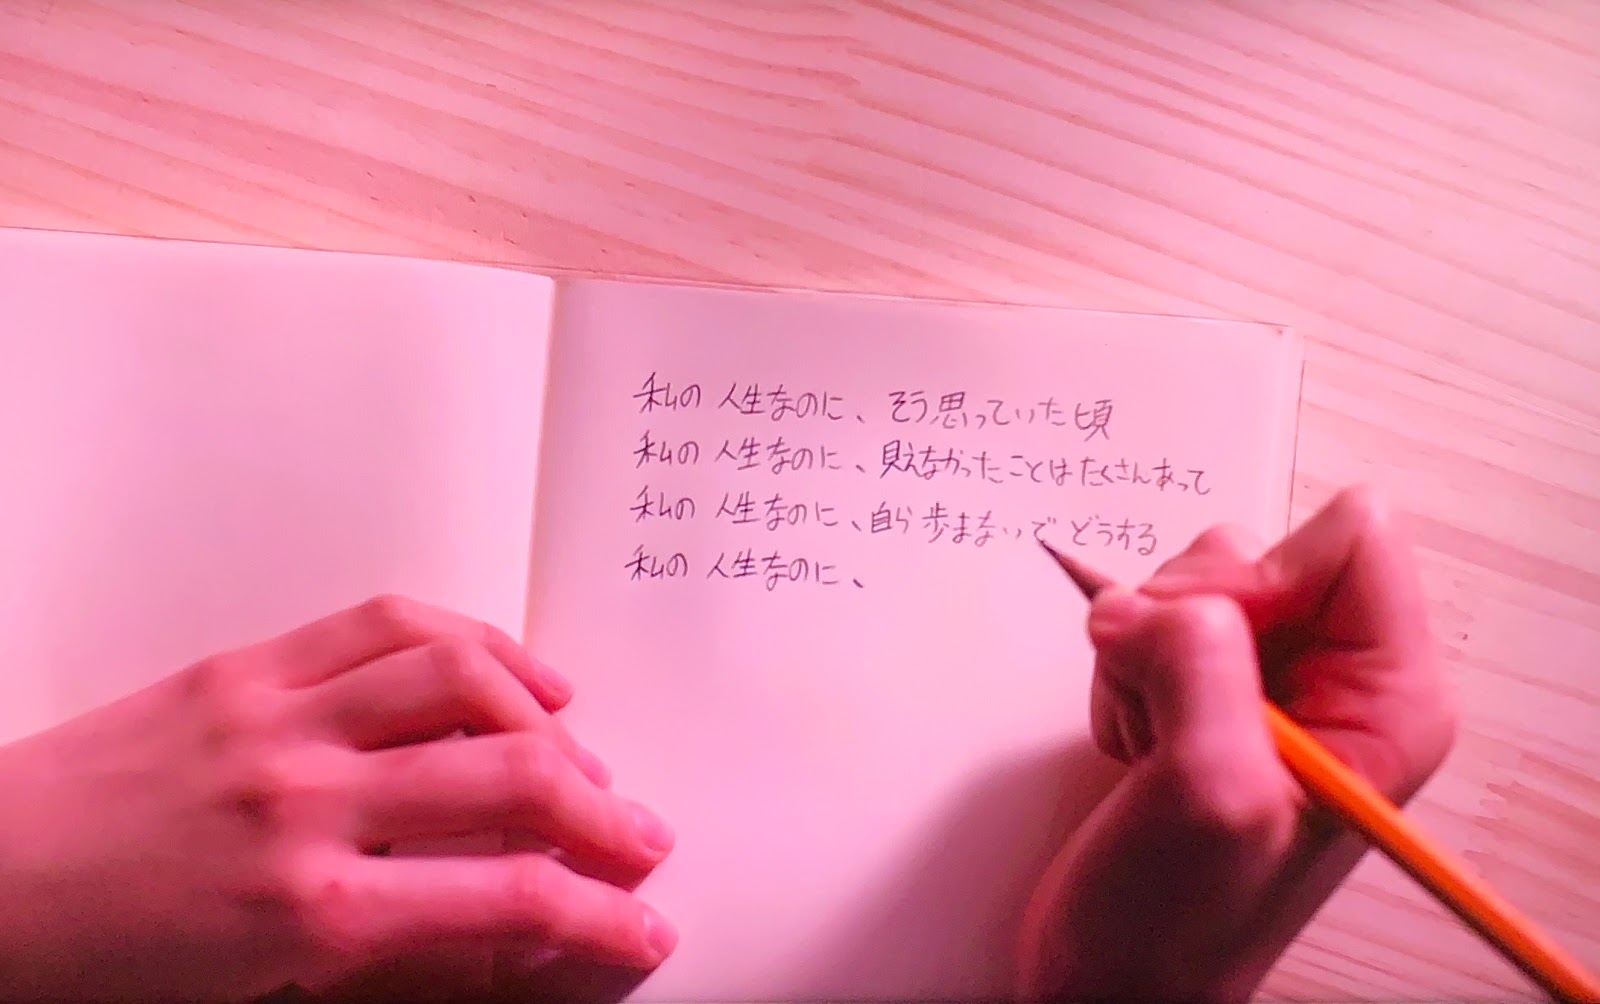 私の人生なのに、そう思っていた頃
私の人生なのに、見えなかったことはたくさんあって
私の人生なのに、自ら歩まないでどうする
私の人生なのに、